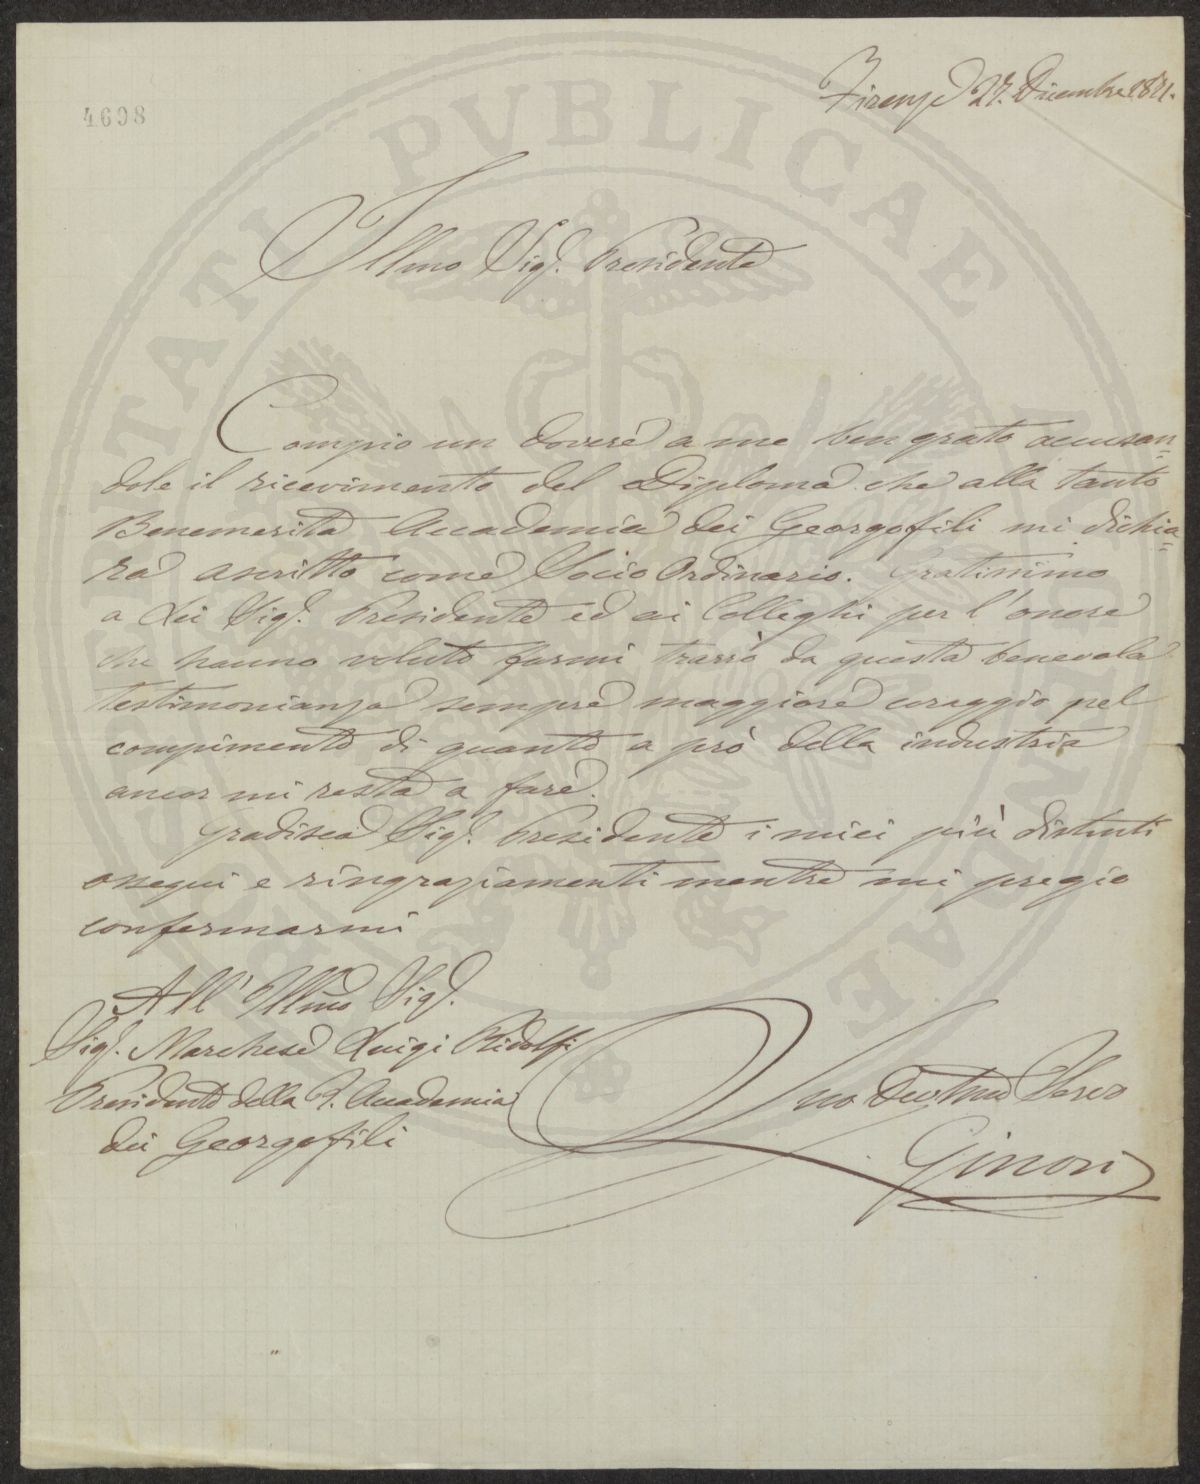 4698
Firenze 27. Dicembre 1871.
Illmo Sigr. Presidente
Compio un dovere a me ben grato accusan=
dole il ricevimento del Diploma che alla tanto
Benemerita Accademia dei Georgofili mi dichia=
ra ascritto come Socio Ordinario. Gratissimo
a Lei Sigr. Presidente ed ai Colleghi per l'onore
che hanno voluto farmi trarrò da questa benevola
testimonianza sempre maggiore coraggio pel
compimento di quanto a prò della industria
ancor mi resta a fare.
Gradisca Sigr. Presidente i miei più distinti
ossequi e ringraziamenti mentre mi pregio
confermarmi
All' Illmo Sigr.
Sigr. Marchese Luigi Ridolfi
Presidente della R. Accademia
dei Georgofili
Suo Devmo Servo
Ginori
PROSPERITATI PVBLICAE AVGENDAE